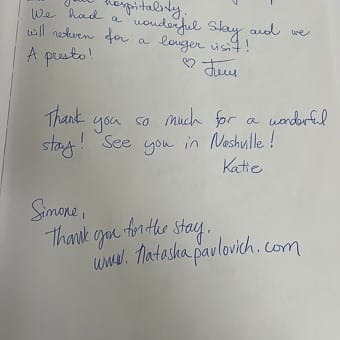 your hospitality.
We had a wonderful stay and we
will return for a longer visit!
A presto!
Thank you so much for a wonderful
stay! See you in Nashville!
Katie
Simone,
Thank you for the stay.
www.natashapavlovich.com